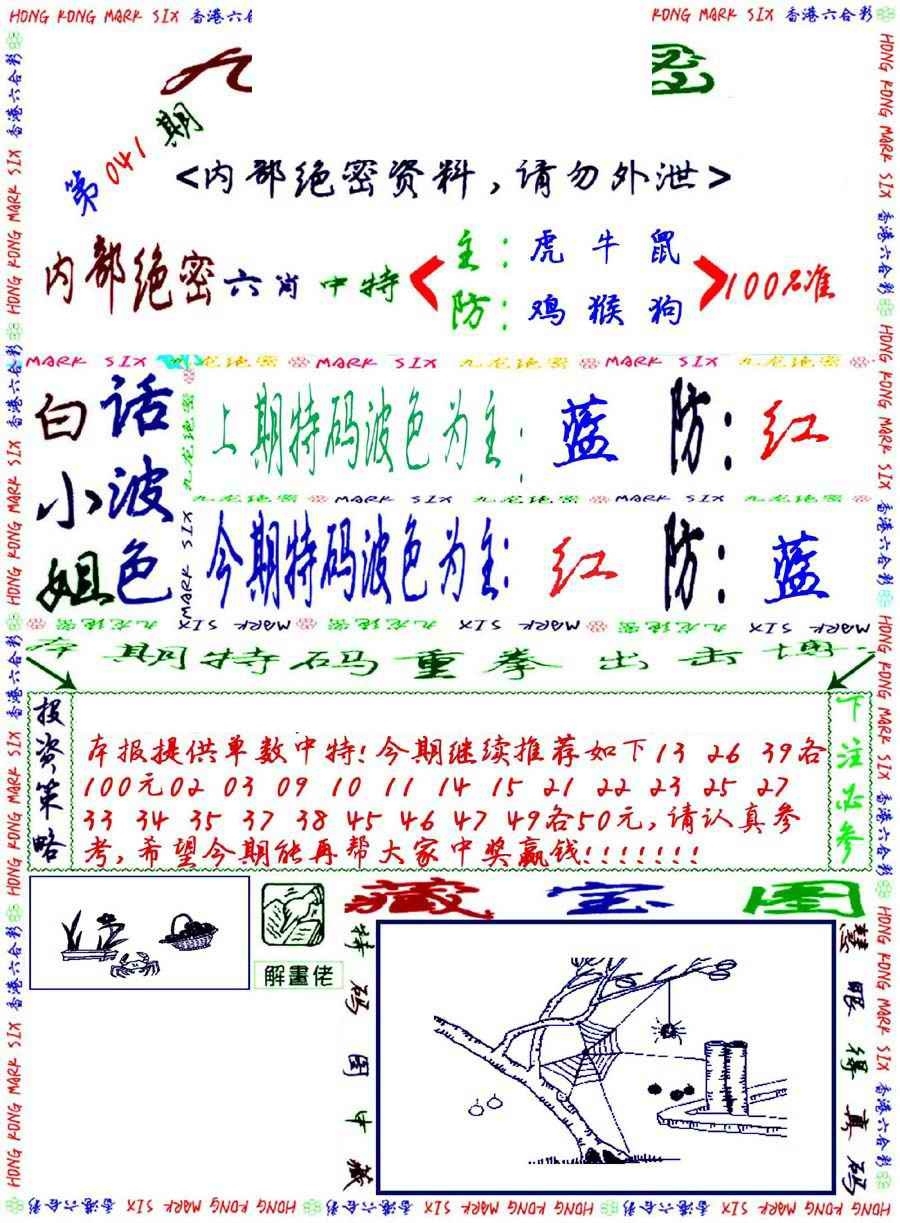 HONG KONG MARK SIX 香港六合彩
KONG MARK SIX 香港六合彩
九
第041期
<内部绝密资料,请勿外泄>
内部绝密六肖中特
主:虎牛鼠
防:鸡猴狗
100%准
MARK SIX 九龙绝密 MARK SIX 九龙绝密 MARK SIX 九龙绝密
白话
小波
姐色
上期特码波色为主:蓝 防:红
九龙绝密 MARK SIX 九龙绝密 MARK SIX 九龙绝密
今期特码波色为主:红 防:蓝
九龙绝密 MARK SIX 九龙绝密 MARK SIX 九龙绝密 MARK SIX
本期特码重拳出击博
投资策略
本报提供单数中特!今期继续推荐如下13 26 39各
100元02 03 09 10 11 14 15 21 22 23 25 27
33 34 35 37 38 45 46 47 49各50元,请认真参
考,希望今期能再帮大家中奖赢钱!!!!!!!
下注必参
藏宝图
解畫佬
特码图中藏
慧眼得真码
HONG KONG MARK SIX 香港六合彩 HONG KONG MARK SIX 香港六合彩 HONG KONG MARK SIX 香港六合彩